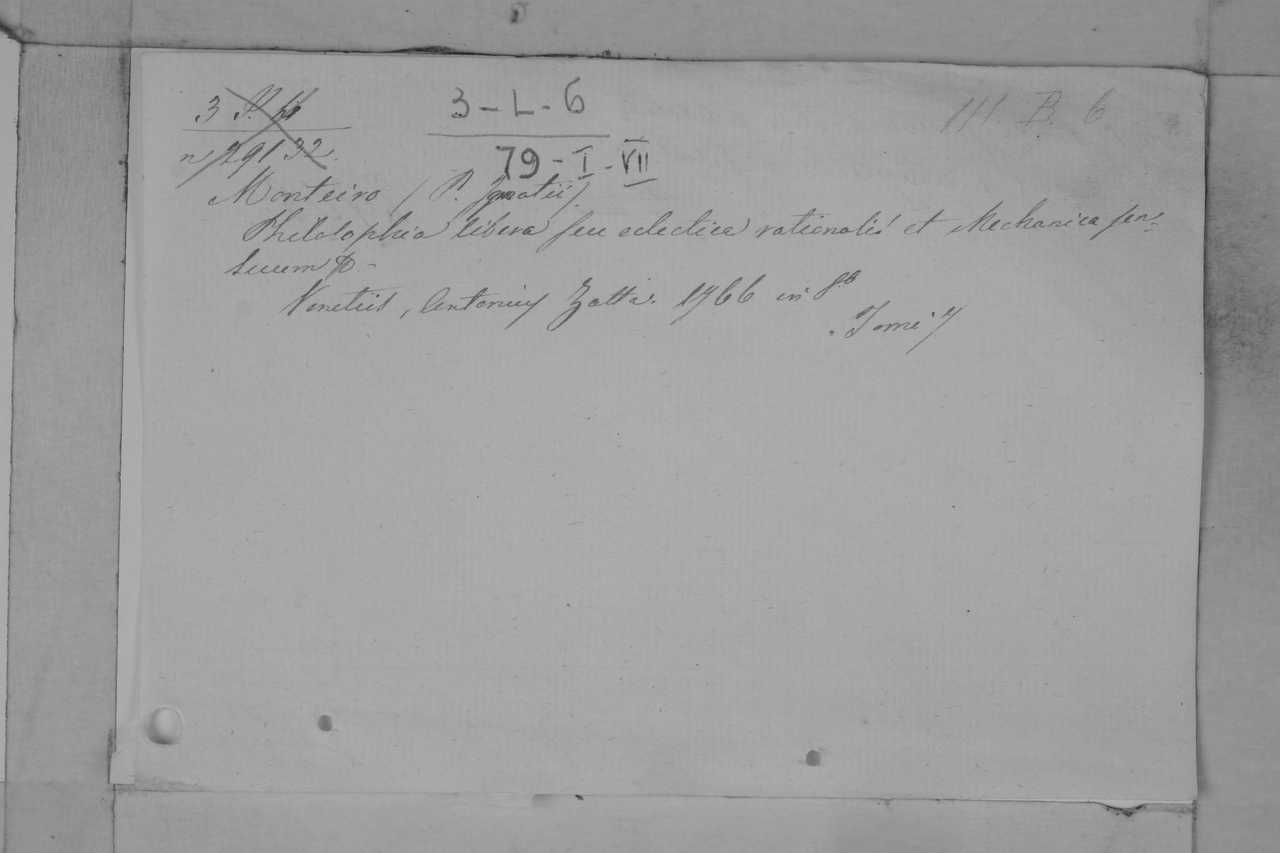 3-L-6
III. B. 6
79-I-VII
Monteiro (P. Ignatii).
Philosophia libera seu eclectica rationalis et Mechanica sen-
suum &-
Venetiis, Antonius Zatta. 1766 in 8º
Tomi 7